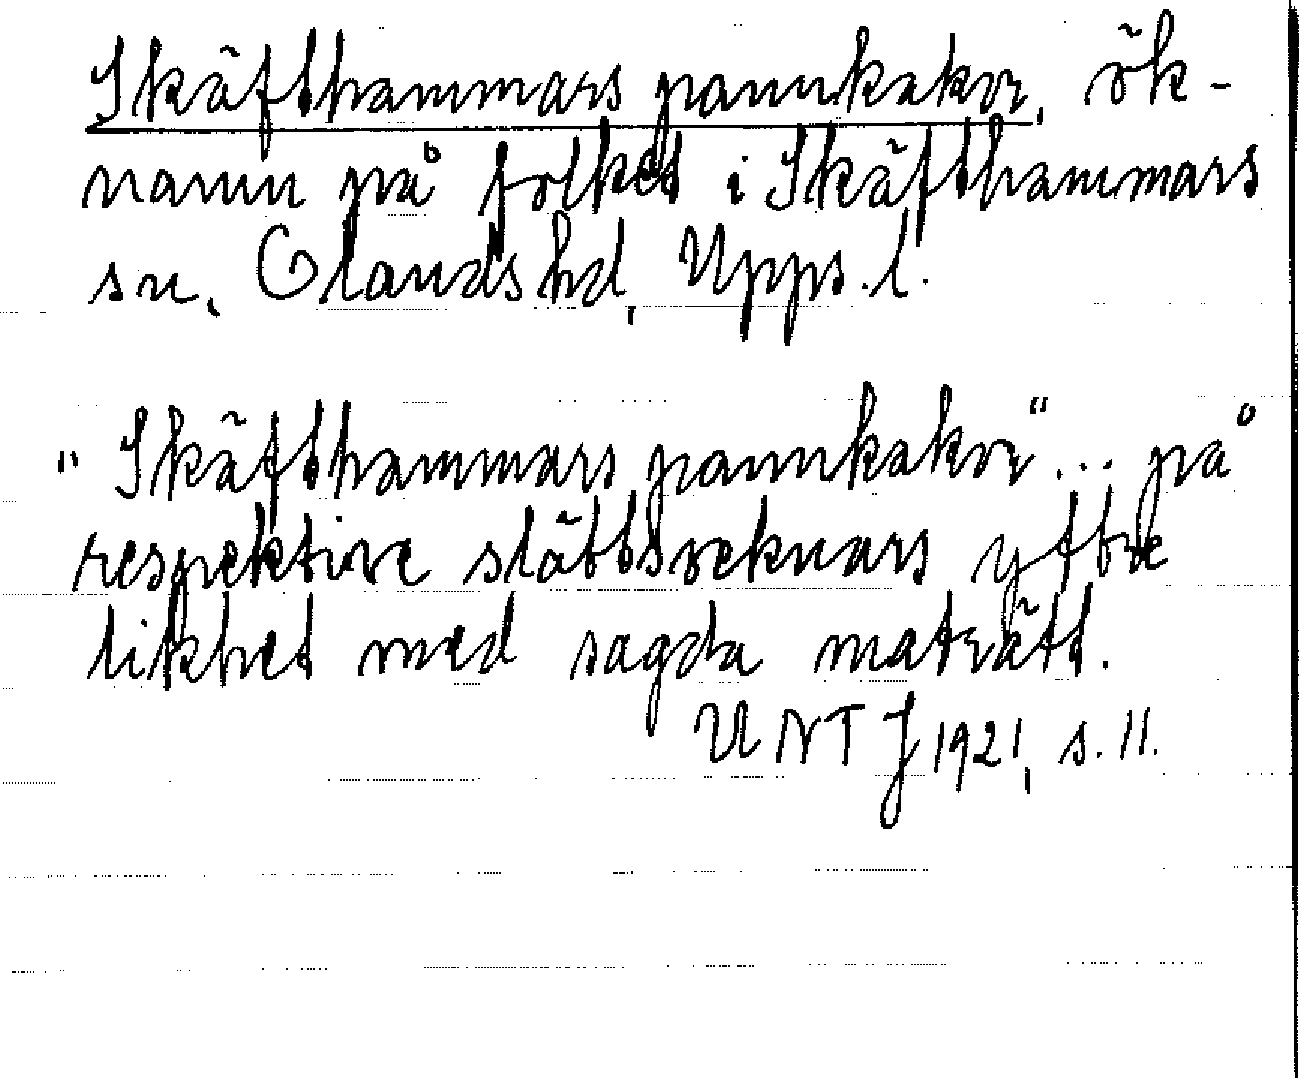 Skäfthammars pannkakor, ök-
namn på folket i Skäfthammars
sn, Olands hd, Upps. l.
"Skäfthammars pannkakor" ... på
respektive slättsocknars yttre
likhet med sagda maträtt.
UNT J 1921, s. 11.